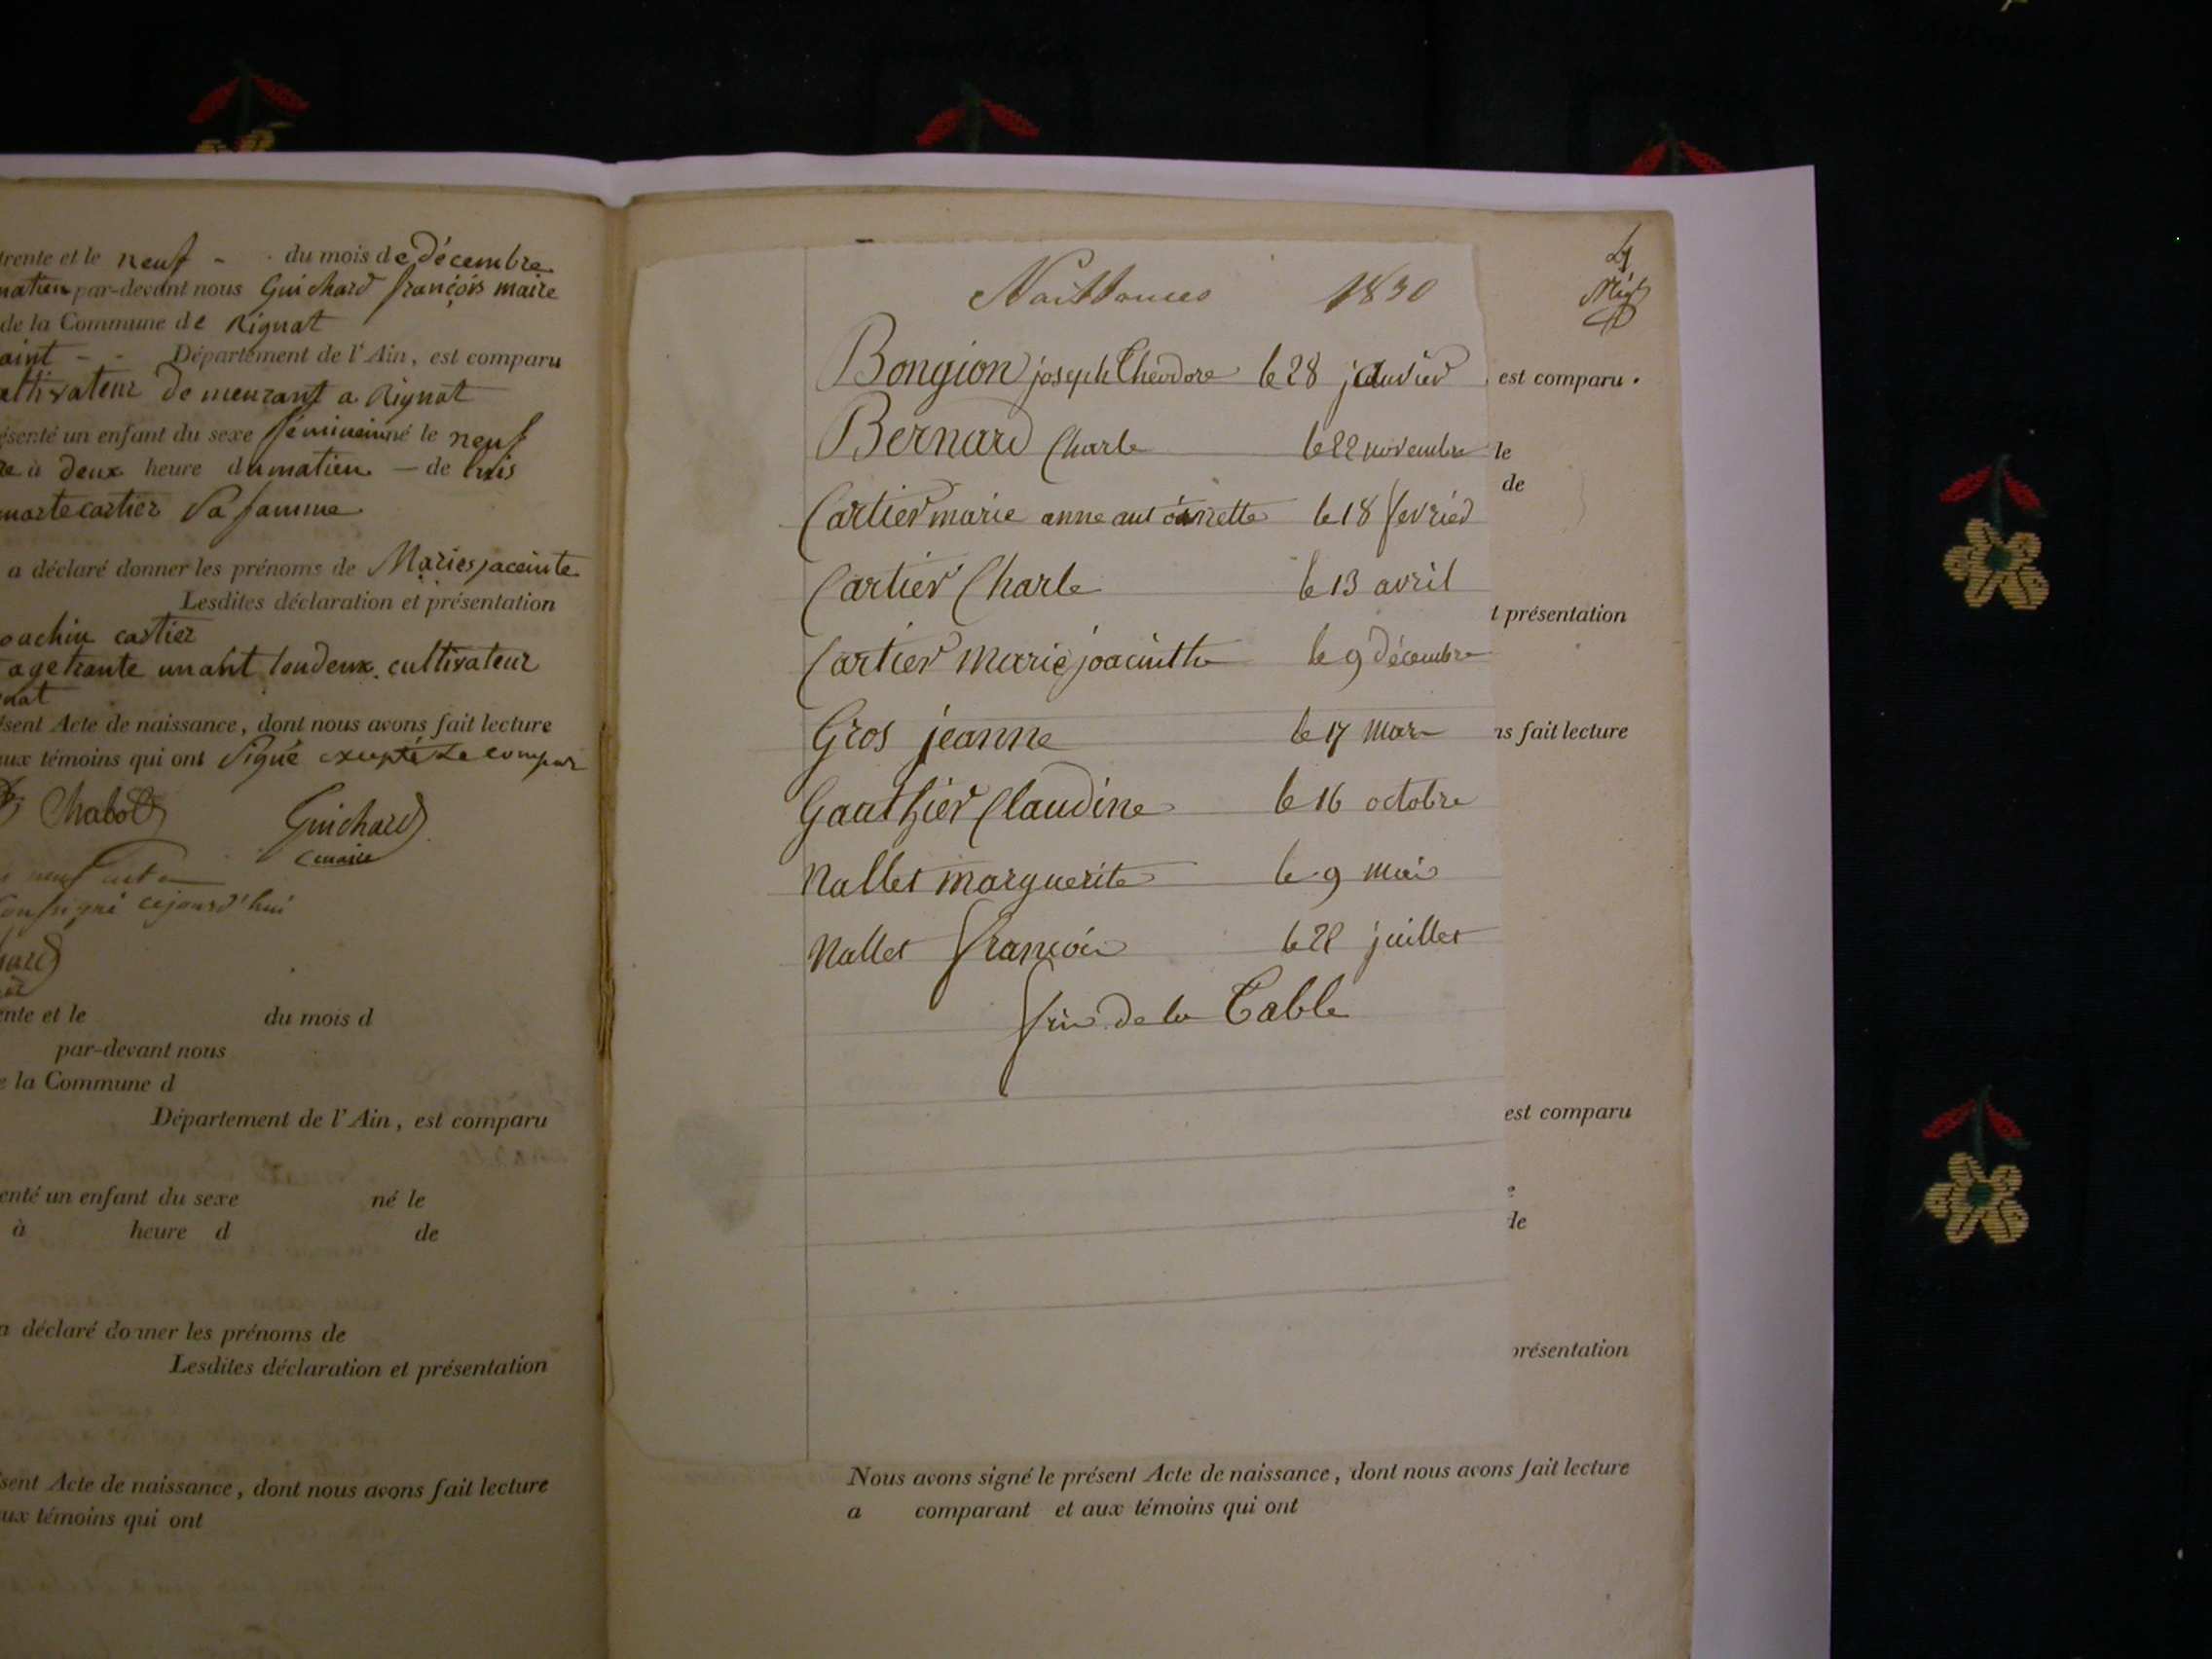 trente et le neuf - du mois de décembre
matien par-devant nous Guichard françois maire
de la Commune de Rignat
aint - - Département de l'Ain, est comparu
cultivateur de meurant a Rignat
ésenté un enfant du sexe féminein né le neuf
re à deux heure du matien — de luis
marte cartier sa famme
a déclaré donner les prénoms de Maries jaceinte
Lesdites déclaration et présentation
oachin cartier
age trante un ant toudeux cultivateur
nat
ésent Acte de naissance, dont nous avons fait lecture
aux témoins qui ont signé exepté le compar
Chabot Guichard
maire
neuf acte
consigné cejourd'hui
ente et le du mois d
par-devant nous
e la Commune d
Département de l'Ain, est comparu
enté un enfant du sexe né le
à heure d de
a déclaré donner les prénoms de
Lesdites déclaration et présentation
ésent Acte de naissance, dont nous avons fait lecture
ux témoins qui ont
4
Naissances 1830
Bongion joseph Théodore le 28 janvier est comparu.
Bernard Charle le 22 novembre le
de
Cartier marie anne antoinette le 18 fevrier
Cartier Charle le 13 avril
t présentation
Cartier marie joacinthe le 9 décembre
Gros jeanne le 17 mars ns fait lecture
Gauthier Claudine le 16 octobre
Nallet marguerite le 9 mai
Nallet françois le 22 juillet
fin de la Table
est comparu
e
de
présentation
Nous avons signé le présent Acte de naissance, dont nous avons fait lecture
a comparant et aux témoins qui ont